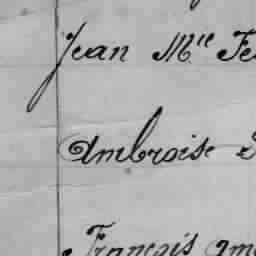 Jean M^lle Fe
Ambroise
François Am